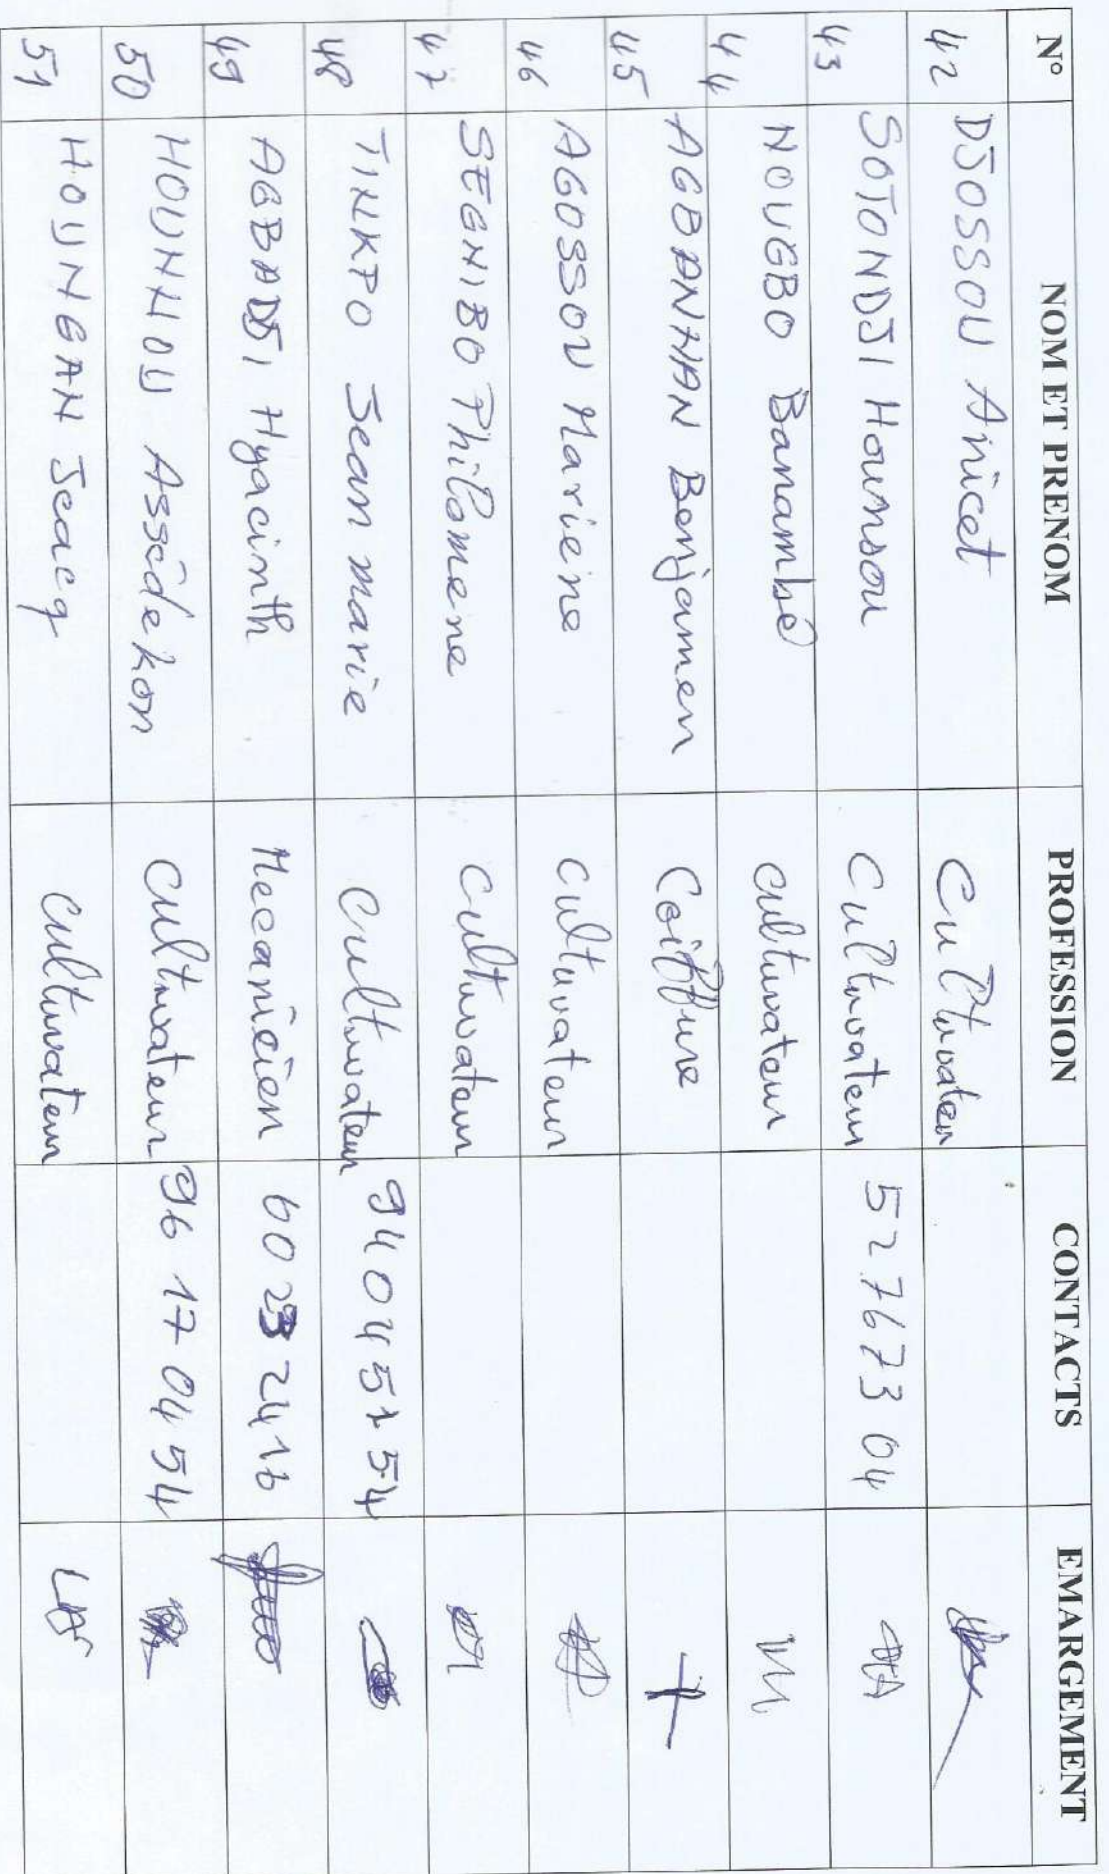 N° NOM ET PRENOM PROFESSION CONTACTS EMARGEMENT
42 DJOSSOU Anicet Cultivateu
43 SOTONDJI Hounsou Cultivateur 52 76 73 04
44 NOUGBO Banambé cultivateur
45 AGBANNAN Benjamen Coiffure
46 AGOSSOU Marieine cultivateur
47 SEGNIBO Philomene cultivateur
48 TINKPO Jean marie Cultivateur 94 04 57 54
49 AGBADJI Hyacinth Mecanicien 60 23 24 16
50 HOUNNOU Assidékon Cultivateur 96 17 04 54
51 HOUNGAN Jeacq Cultivateur